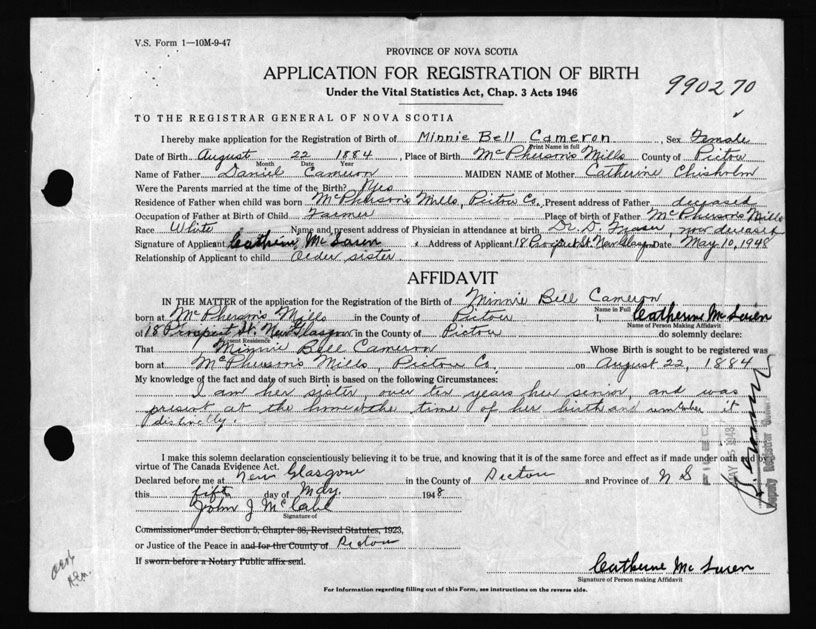 V.S. Form 1—10M-9-47
PROVINCE OF NOVA SCOTIA
APPLICATION FOR REGISTRATION OF BIRTH
990270
Under the Vital Statistics Act, Chap. 3 Acts 1946
TO THE REGISTRAR GENERAL OF NOVA SCOTIA
I hereby make application for the Registration of Birth of Minnie Bell Cameron, Sex Female
Print Name in full
Date of Birth August 22 1884, Place of Birth McPherson's Mills County of Pictou
Month Date Year
Name of Father Daniel Cameron MAIDEN NAME of Mother Catherine Chisholm
Were the Parents married at the time of the Birth? Yes
Residence of Father when child was born McPherson's Mills, Pictou Co. Present address of Father deceased
Occupation of Father at Birth of Child Farmer Place of birth of Father McPherson's Mills
Race White Name and present address of Physician in attendance at birth Dr. D. Fraser, now deceased
Signature of Applicant Catherine McLaren Address of Applicant 18 Prospect St New Glasgow Date May 10, 1948
Relationship of Applicant to child Older sister
AFFIDAVIT
IN THE MATTER of the application for the Registration of the Birth of Minnie Bell Cameron
Name in Full
born at McPherson's Mills in the County of Pictou I, Catherine McLaren
Name of Person Making Affidavit
of 18 Prospect St. New Glasgow in the County of Pictou do solemnly declare:
Present Residence
That Minnie Bell Cameron Whose Birth is sought to be registered was
born at McPherson's Mills, Pictou Co. on August 22, 1884
My knowledge of the fact and date of such Birth is based on the following Circumstances:
I am her sister, over ten years her senior, and was
present at the home at the time of her birth and remember it
distinctly.
I make this solemn declaration conscientiously believing it to be true, and knowing that it is of the same force and effect as if made under oath and by
virtue of The Canada Evidence Act.
Declared before me at New Glasgow in the County of Pictou and Province of N S
this day of May 1948
John J McCabe
Signature of
Commissioner under Section 5, Chapter 38, Revised Statutes, 1923,
or Justice of the Peace in and for the County of Pictou
If sworn before a Notary Public affix seal.
Catherine McLaren
Signature of Person making Affidavit
For Information regarding filling out of this Form, see instructions on the reverse side.
Deputy Registrar General